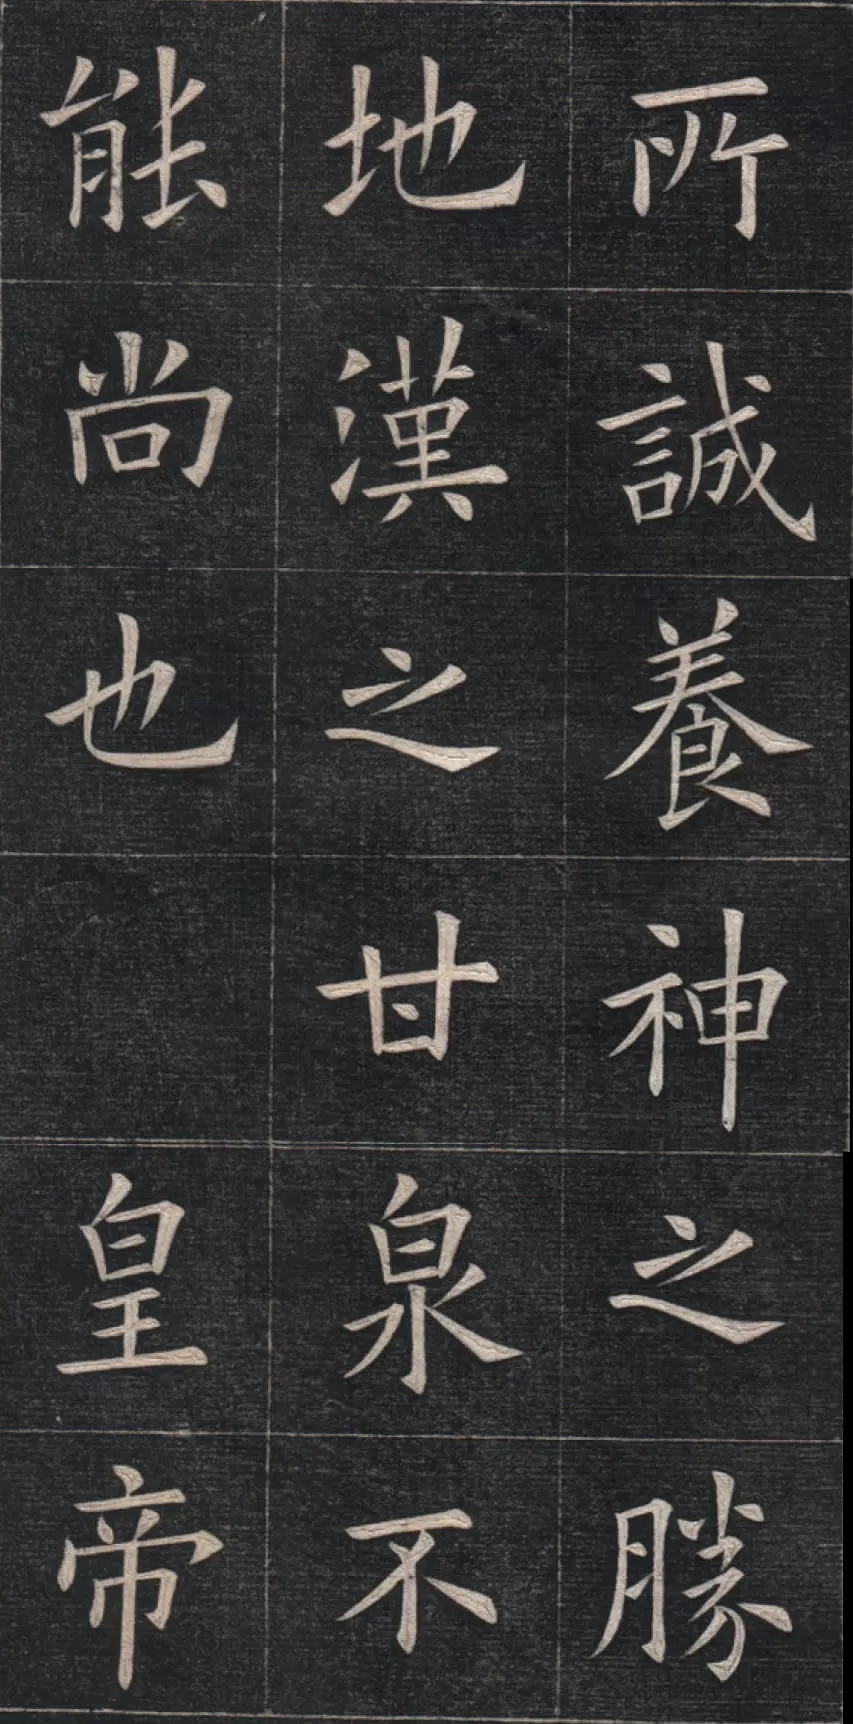 所誠養神之勝
地漢之甘泉不
能尚也 皇帝